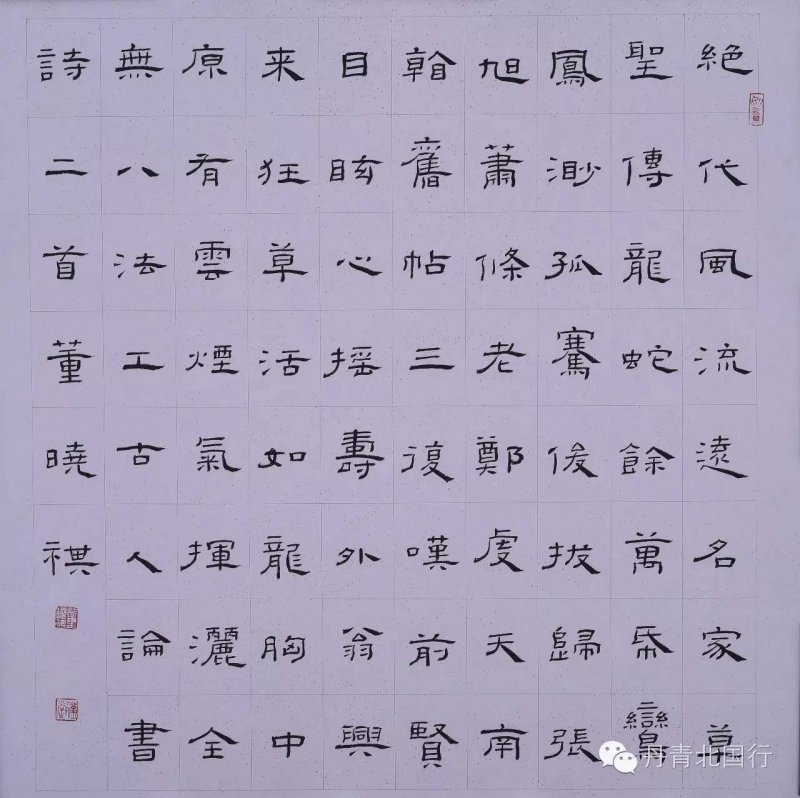 絕代風流遠名家草
聖傳龍蛇餘萬帋鸞
鳳渺孤騫俊拔歸張
旭蕭條老鄭虔天南
舊帖三復嘆前賢
目眩心搖壽外翁興
来狂草活如龍胸中
原有雲煙氣揮灑全
無八法工古人論書
詩二首董曉祺
丹青北国行